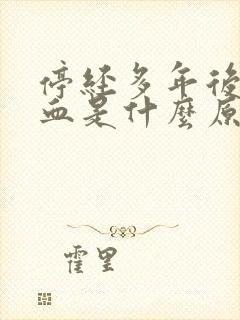 停經多年後
血是什麼原
霍里